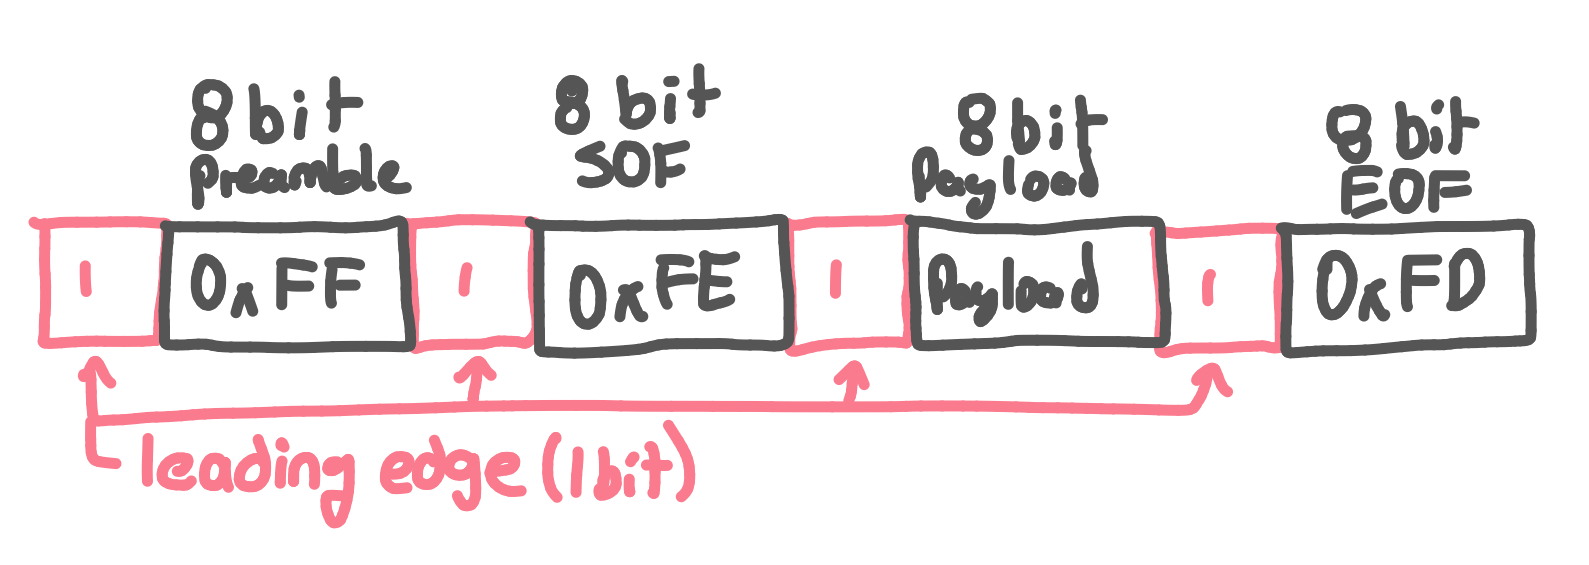 8 bit
Preamble
8 bit
SOF
8 bit
Payload
8 bit
EOF
1 0xFF 1 0xFE 1 Payload 1 0xFD
leading edge (1 bit)